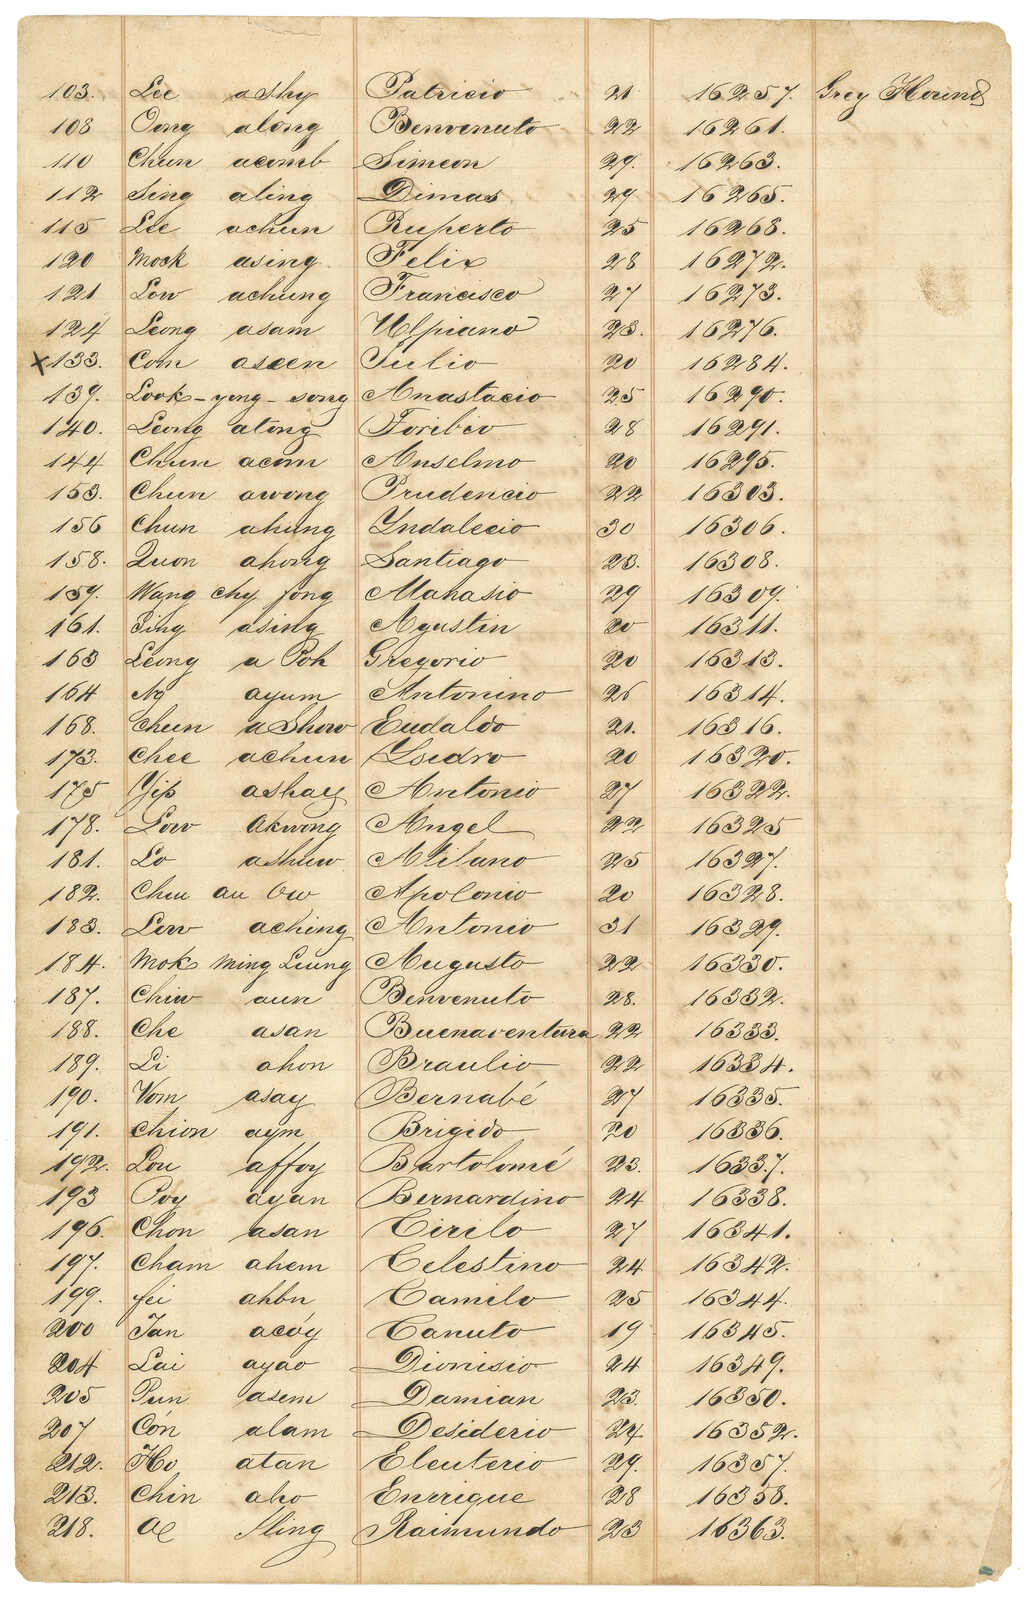 103. Lee aShy Patricio 21 16257. Grey Hound
108 Oong along Benvenuto 22 16261.
110 Chun acomb Simeon 29. 16263.
112 Sing aling Dimas 29 16265.
115 Lee achun Ruperto 25 16268.
120 Mock asing. Felix 28 16272.
121 Low achung Francisco 27 16273.
124 Leong asam Ulpiano 23. 16276.
x133. Com aseen Julio 20 16284.
139. Look-yong-song Anastacio 25 16290.
140. Leong atong Toribio 28 16291.
144 Chun acom Anselmo 20 16295.
153. Chun awong Prudencio 22 16303.
156 Chun ahung Yndalecio 30 16306.
158. Quon ahong Santiago 23. 16308.
159. Wang chy fong Atanasio 29 16309.
161. Sing asing Agustin 20 16311.
163 Leong a Poh Gregorio 20 16313.
164 Ng ayum Antonino 26 16314.
168. Chun aShow Eudaldo 21. 16316.
173. Chee achun Ysidro 20 16320.
175 Yip ashay Antonio 27 16322.
178. Low akwong Angel 22 16325
181. Lo ashuw Atilano 25 16327.
182. Chu au Ow Apolonio 20 16328.
183. Low aching Antonio 31 16329.
184. Mok Ming Leung Augusto 22 16330.
187. Chiw aun Benvenuto 28. 16332.
188. Che asan Buenaventura 22 16333.
189. Li ahon Braulio 22 16334.
190. Vom asay Bernabé 27 16335.
191. Chion aym Brigido 20 16336.
192. Lou affoy Bartolomé 23. 16337.
193 Poy ayan Bernardino 24 16338.
196. Chon asan Cirilo 27 16341.
197. Cham ahem Celestino 24 16342.
199. fei ahbn Camilo 25 16344.
200 Tan acóy Canuto 19 16345.
204 Lai ayao Dionisio 24 16349.
205 Pun asem Damian 23. 16350.
207 Cón alam Desiderio 24 16352.
212. Ho atan Eleuterio 29. 16357.
213. Chin aho Enrrique 28 16358.
218. Sling Raimundo 23 16363.